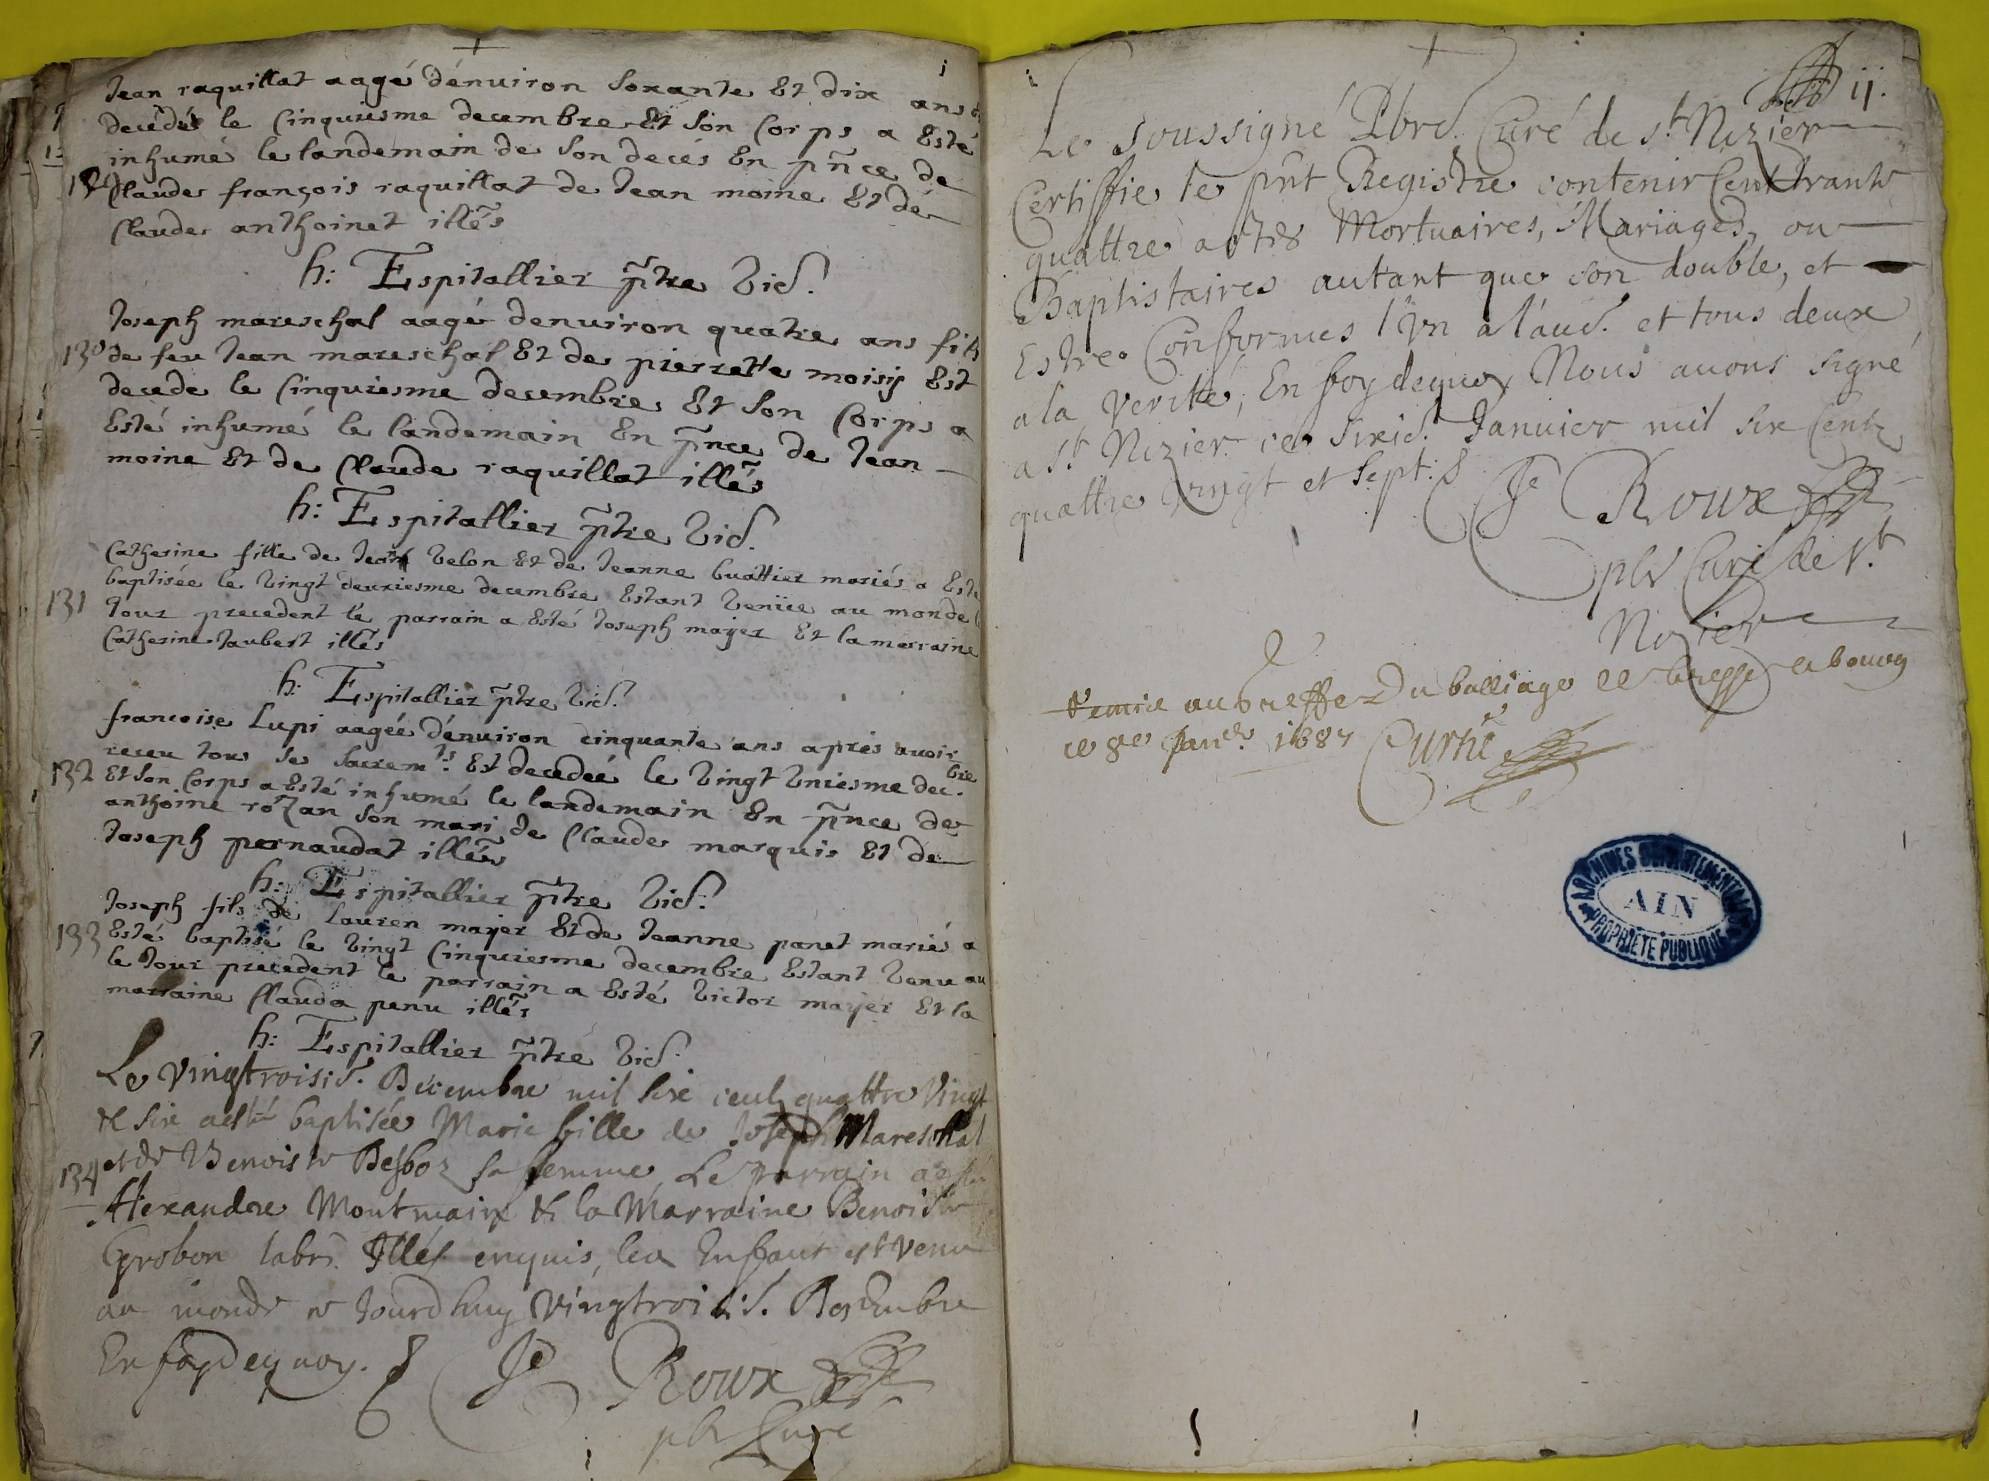 Jean raquillat aagé dénuiron soxante Et dix ans
decédé le Cinquiesme decembre Et son Corps a Esté
inhumé le landemain de son decés En pñce de
Claude françois raquillat de Jean moine Et de
Claude anthoinet illés
h: Espitallier p̃tre vic.
Joseph mareschal aagé denuiron quatre ans fils
130 de feu Jean mareschal Et de pierrette moisy Est
decede le Cinquiesme decembre Et son Corps a
Esté inhumé le landemain En pñce de Jean
moine Et de Claude raquillat illés
h: Espitallier p̃tre vic.
Catherine fille de Jean velon Et de Jeanne buathier mariés a Esté
131 baptisée le vingt deuxiesme decembre Estant veniie au monde
Jour precedent le parrain a Esté Joseph mayer Et la marraine
Catherine Jaubert illés
h: Espitallier p̃tre vic.
francoise Lupi aagée dénuiron cinquante ans aprés auoir
receu tous se sacremts. Est decedée le vingt vniesme dec.bre
132 Et son Corps a Esté inhumé le landemain En pñce de
anthoine rozan son mari de Claude marquis Et de
Joseph pernaudat illés
h: Espitallier p̃tre vic.
Joseph fils de Lauren mayer Et de Jeanne panet marié a
133 Esté baptisé le vingt Cinquiesme decembre Estant venu au
le Jour precedent le parrain a Esté victor mayer Et la
marraine Clauda penu illés
h: Espitallier p̃tre vic.
Le vingtroisie. Decembre mil six cent quattre vingt
& six a esté baptisée Marie fille de Joseph Mareschal
134 et de Benoiste Besboz sa femme, Le parrain a esté
Alexandre Montmain & la Marraine Benoiste
Grobon labr. Illés enquis, lea Enffant est venu
au monde ce Jourdhuy vingtroisie. Decembre
En foy de quoy.
Je Roux
pbr Curé
ij.
Le soussigné Pbre. Curé de st. Nizier
Certiffie le pnt Registre contenir Cent trante
quattre actes Mortuaires, Mariages, ou
Baptistaires autant que son double, et
Estre Conformes l'Vn a l'aue. et tous deux
a la verité, En foy dequoy Nous auons signé
a St. Nizier ce sixie. Januier mil six Centz
quattre vingt et sept.
Je Roux
pbr Curé de St.
Nizier
Remice au greffe Du balliage de bresse a bourg
ce 8e Janer. 1687 Curné
ARCHIVES DÉPARTEMENTALES
AIN
PROPRIÉTÉ PUBLIQUE